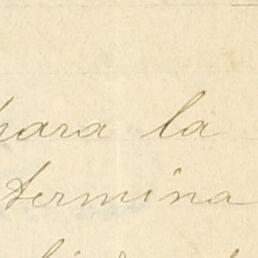 para la
termina